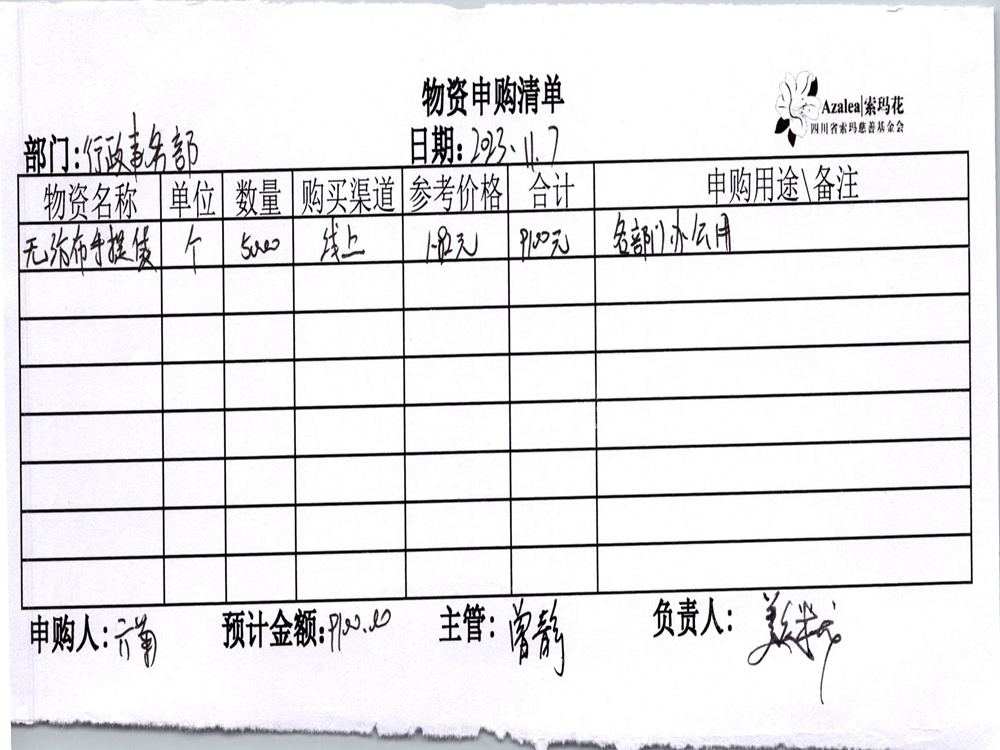 物资申购清单
Azalea|索玛花
四川省索玛慈善基金会
部门:行政事务部
日期:2023.11.7
物资名称 单位 数量 购买渠道 参考价格 合计 申购用途\备注
无纺布手提袋 个 5000 线上 1.82元 9100元 各部门办公用
申购人:
预计金额:9100.00
主管:曾静
负责人: